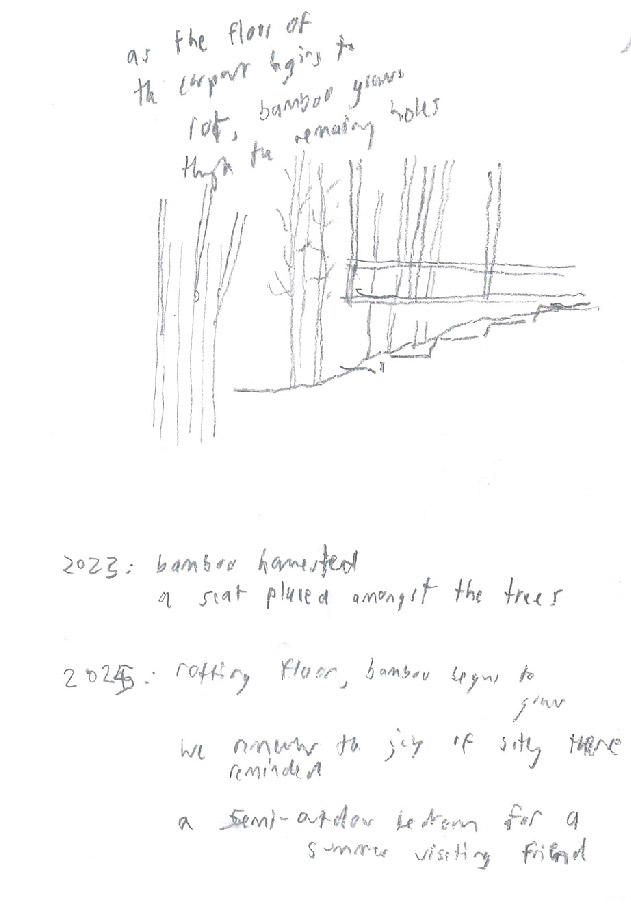 as the floor of
the carport begins to
rot, bamboo grows
through the remaining holes
2023: bamboo harvested
a seat placed amongst the trees
2025: rotting floor, bamboo begins to
grow
we remember the joy of sitting there
reminded
a semi-outdoor bedroom for a
summer visiting friend